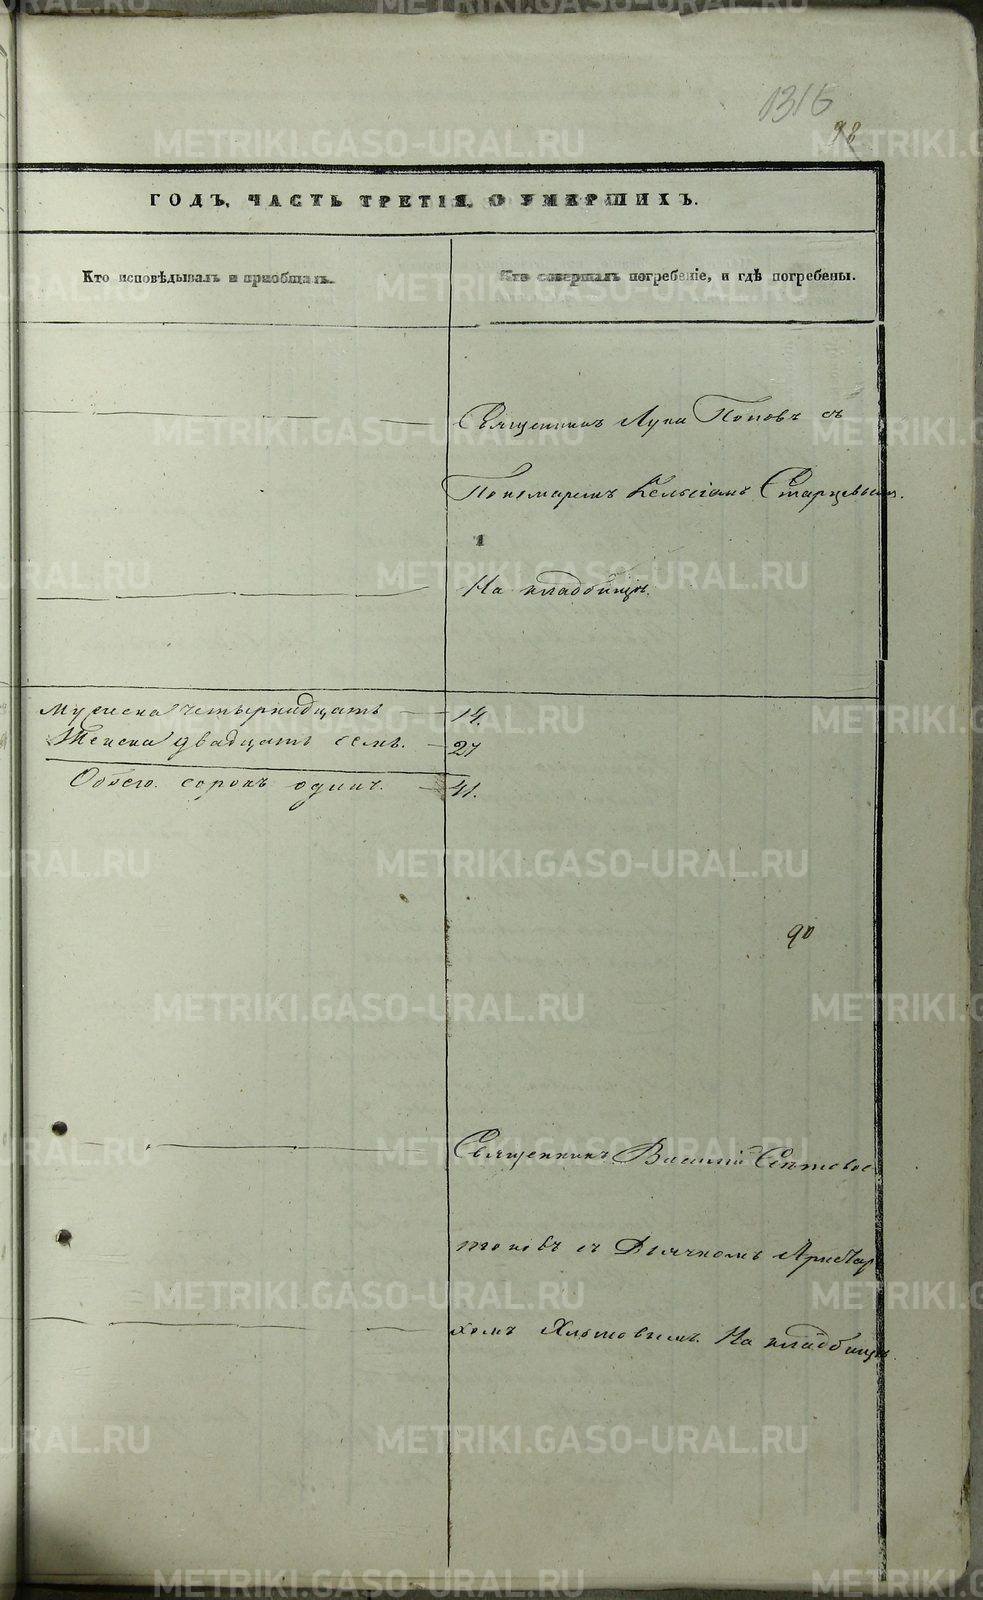 1316
98
ГОДЪ, ЧАСТЬ ТРЕТІЯ, О УМЕРШИХЪ.
Кто исповѣдывалъ и приобщалъ.
Кто совершалъ погребеніе, и гдѣ погребены.
Священникъ Лука Поповъ съ
Пономаремъ Кельсіемъ Старцевымъ.
На кладбищѣ.
Мужеска четырнадцать — 14.
Женска двадцать семь. — 27
Обоего. сорокъ одинъ. — 41.
90
Священникъ Василій
съ Дьячкомъ Аристар
хомъ На кладбищѣ.
METRIKI.GASO-URAL.RU